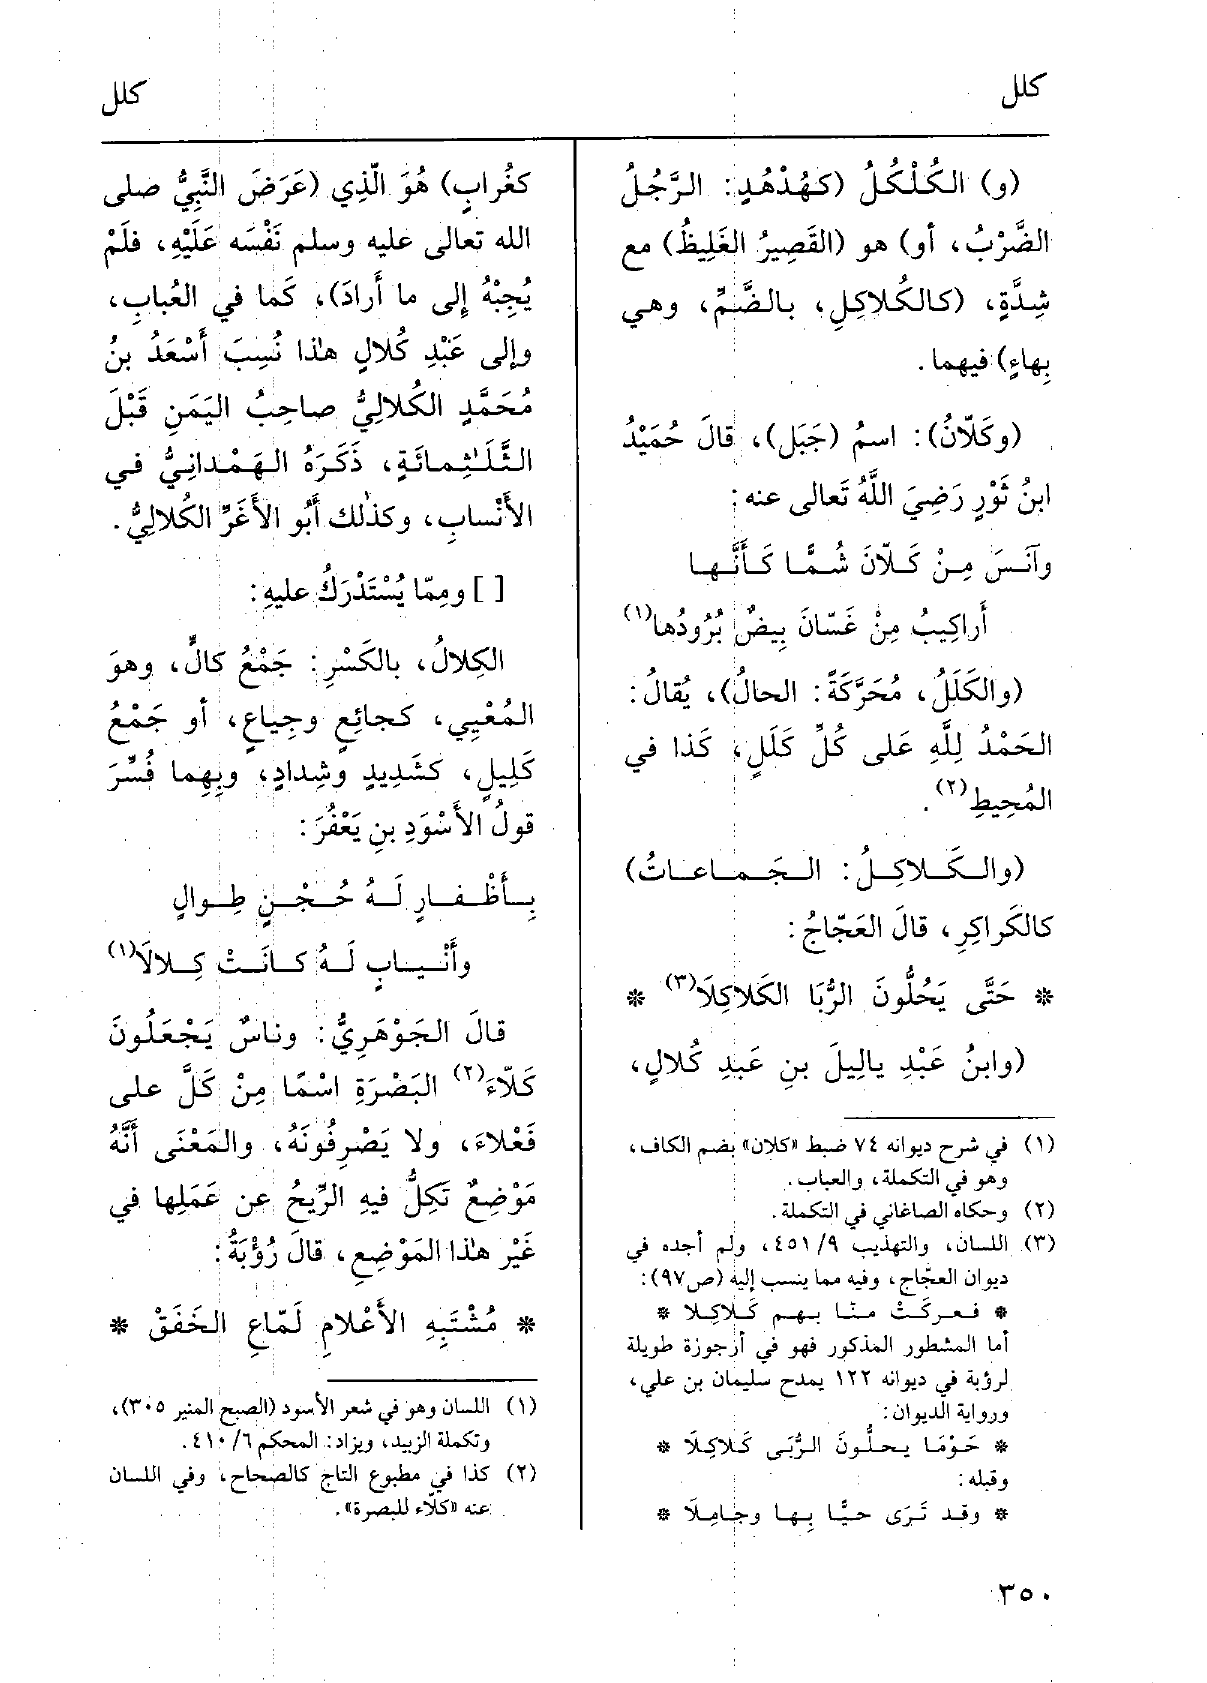 كلل
كلل
(و) الكُلْكُلُ (كهُدْهُدٍ: الرَّجُلُ
الضَّرْبُ، أو) هو (القَصِيرُ الغَلِيظُ) مع
شِدَّةٍ، (كالكُلاكِلِ، بالضَّمِّ، وهي
بِهاءٍ) فيهما.
(وكَلّانُ): اسمُ (جَبَل)، قالَ حُمَيْدُ
ابنُ ثَوْرٍ رَضِيَ اللَّهُ تَعالى عنه:
وآنَسَ مِنْ كَلّانَ شُمًّا كَأَنَّها
أَراكِيبُ مِنْ غَسّانَ بِيضٌ بُرُودُها(١)
(والكَلَلُ، مُحَرَّكَةً: الحالُ)، يُقالُ:
الحَمْدُ لِلَّهِ عَلى كُلِّ كَلَلٍ، كَذا في
المُحِيطِ(٢).
(والكَلاكِلُ: الجَماعاتُ)
كالكَراكِرِ، قالَ العَجّاجُ:
* حَتَّى يَحُلُّونَ الرُّبَا الكَلاكِلَا(٣) *
(وابنُ عَبْدِ يالِيلَ بنِ عَبدِ كُلالٍ،
(١) في شرح ديوانه ٧٤ ضبط «كلان» بضم الكاف،
وهو في التكملة، والعباب.
(٢) وحكاه الصاغاني في التكملة.
(٣) اللسان، والتهذيب ٤٥١/٩، ولم أجده في
ديوان العجّاج، وفيه مما ينسب إليه (ص٩٧):
* فعركَتْ منّا بهم كَلاكِلا *
أما المشطور المذكور فهو في أرجوزة طويلة
لرؤبة في ديوانه ١٢٢ يمدح سليمان بن علي،
ورواية الديوان:
* حَوْمًا يحلُّونَ الرُّبَى كَلاكِلَا *
وقبله:
* وقد تَرَى حيًّا بِها وجامِلَا *
٣٥٠
كغُرابٍ) هُوَ الَّذِي (عَرَضَ النَّبِيُّ صلى
الله تعالى عليه وسلم نَفْسَه عَلَيْهِ، فلَمْ
يُجِبْهُ إِلى ما أَرادَ)، كَما في العُبابِ،
وإلى عَبْدِ كُلالٍ هٰذا نُسِبَ أَسْعَدُ بنُ
مُحَمَّدٍ الكُلالِيُّ صاحِبُ اليَمَنِ قَبْلَ
الثَّلَثِمائَةِ، ذَكَرَهُ الهَمْدانِيُّ في
الأَنْسابِ، وكذٰلك أَبُو الأَغَرِّ الكُلالِيُّ.
[ ] ومِمّا يُسْتَدْرَكُ عليهِ:
الكِلالُ، بالكَسْرِ: جَمْعُ كالٍّ، وهوَ
المُعْيِي، كجائِعٍ وجِياعٍ، أو جَمْعُ
كَلِيلٍ، كشَدِيدٍ وشِدادٍ، وبِهِما فُسِّرَ
قولُ الأَسْوَدِ بنِ يَعْفُرَ:
بِأَظْفارٍ لَهُ حُجْنٍ طِوالٍ
وأَنْيابٍ لَهُ كانَتْ كِلالَا(١)
قالَ الجَوْهَرِيُّ: وناسٌ يَجْعَلُونَ
كَلّاءَ(٢) البَصْرَةِ اسْمًا مِنْ كَلَّ على
فَعْلاءَ، ولا يَصْرِفُونَهُ، والمَعْنَى أَنَّهُ
مَوْضِعٌ تَكِلُّ فيهِ الرِّيحُ عن عَمَلِها في
غَيْرِ هٰذا المَوْضِعِ، قالَ رُؤْبَةُ:
* مُشْتَبِهِ الأَعْلامِ لَمّاعِ الخَفَقْ *
(١) اللسان وهو في شعر الأسود (الصبح المنير ٣٠٥)،
وتكملة الزبيد، ويزاد: المحكم ٤١٠/٦.
(٢) كذا في مطبوع التاج كالصحاح، وفي اللسان
عنه «كلّاء للبصرة».